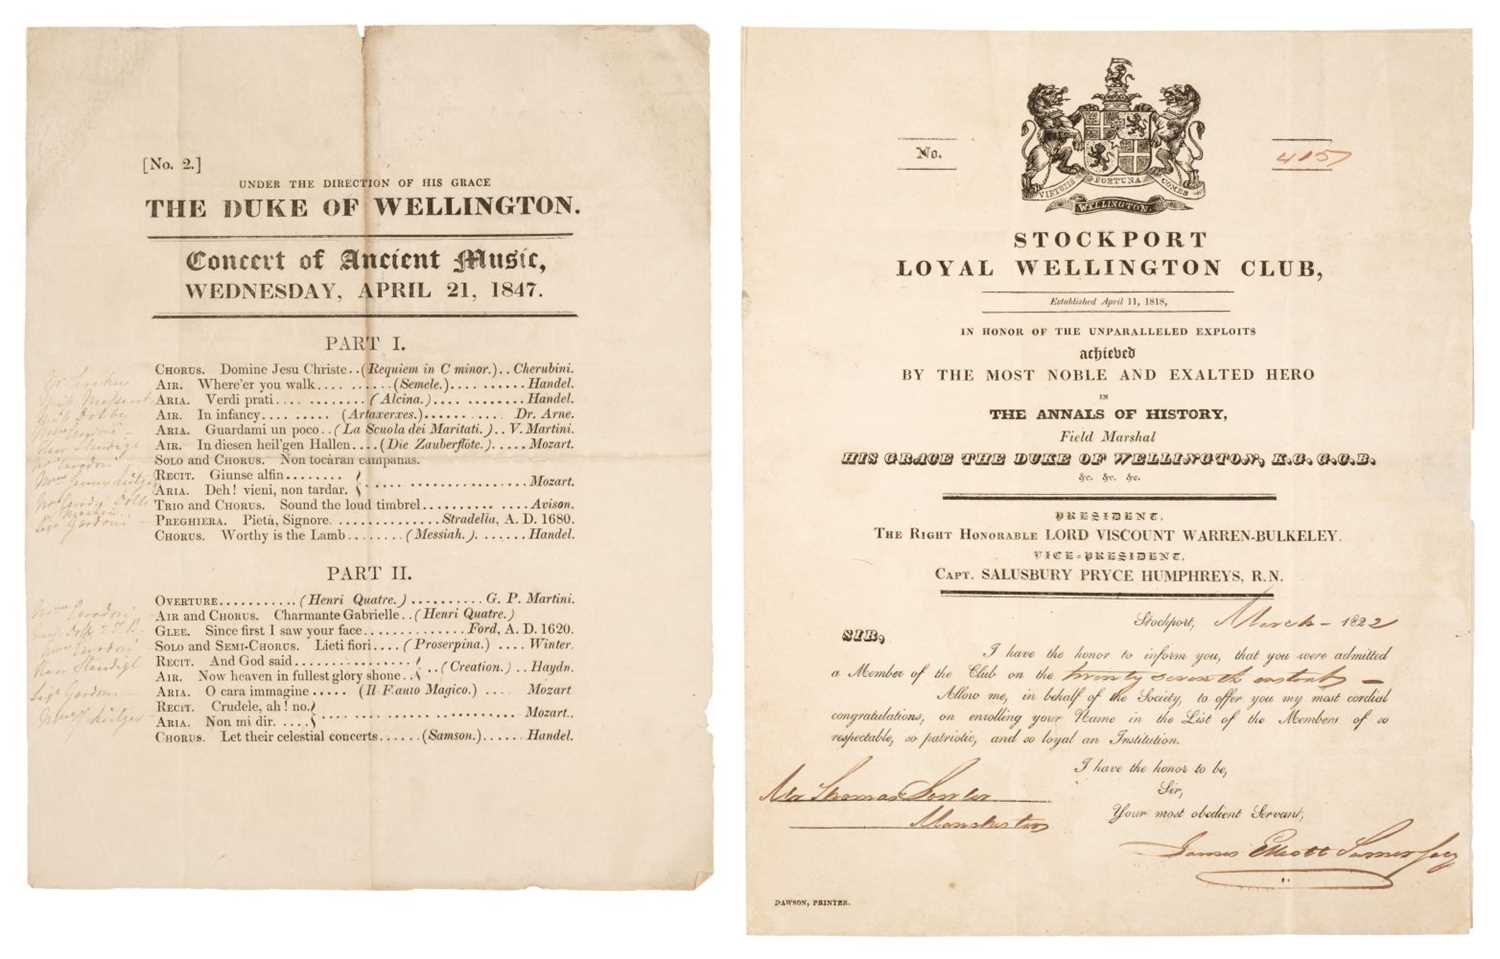 [No. 2.]
UNDER THE DIRECTION OF HIS GRACE
THE DUKE OF WELLINGTON.
Concert of Ancient Music,
WEDNESDAY, APRIL 21, 1847.
PART I.
CHORUS. Domine Jesu Christe..(Requiem in C minor.)..Cherubini.
AIR. Where'er you walk.... ........(Semele.)..........Handel.
ARIA. Verdi prati.... .........(Alcina.).... .........Handel.
AIR. In infancy.... ...... (Artaxerxes.)...... .... Dr. Arne.
ARIA. Guardami un poco..(La Scuola dei Maritati.)..V. Martini.
AIR. In diesen heil'gen Hallen....(Die Zauberflöte.).....Mozart.
SOLO and CHORUS. Non tocàran campanas.
RECIT. Giunse alfin........
ARIA. Deh! vieni, non tardar. ........................Mozart.
TRIO and CHORUS. Sound the loud timbrel..........Avison.
PREGHIERA. Pietà, Signore. ..............Stradella, A. D. 1680.
CHORUS. Worthy is the Lamb........(Messiah.).......Handel.
PART II.
OVERTURE...........(Henri Quatre.)..........G. P. Martini.
AIR and CHORUS. Charmante Gabrielle..(Henri Quatre.)
GLEE. Since first I saw your face............Ford, A. D. 1620.
SOLO and SEMI-CHORUS. Lieti fiori....(Proserpina.) .... Winter.
RECIT. And God said..............
AIR. Now heaven in fullest glory shone.. ..(Creation.)..Haydn.
ARIA. O cara immagine.....(Il Fauto Magico.) .... Mozart
RECIT. Crudele, ah! no.
ARIA. Non mi dir. .... ........................Mozart..
CHORUS. Let their celestial concerts......(Samson.)......Handel.
No.
415
VIRTUTIS FORTUNA COMES
WELLINGTON.
STOCKPORT
LOYAL WELLINGTON CLUB,
Established April 11, 1818,
IN HONOR OF THE UNPARALLELED EXPLOITS
achieved
BY THE MOST NOBLE AND EXALTED HERO
IN
THE ANNALS OF HISTORY,
Field Marshal
HIS GRACE THE DUKE OF WELLINGTON, K.G. G.C.B.
&c. &c. &c.
PRESIDENT.
THE RIGHT HONORABLE LORD VISCOUNT WARREN-BULKELEY.
VICE-PRESIDENT.
CAPT. SALUSBURY PRYCE HUMPHREYS, R.N.
Stockport, March - 1822
SIR,
I have the honor to inform you, that you were admitted
a Member of the Club on the twenty seventh instant -
Allow me, in behalf of the Society, to offer you my most cordial
congratulations, on enrolling your Name in the List of the Members of so
respectable, so patriotic, and so loyal an Institution.
I have the honor to be,
Sir,
Your most obedient Servant,
Mr Thomas
Manchester
James Elliott
DAWSON, PRINTER.